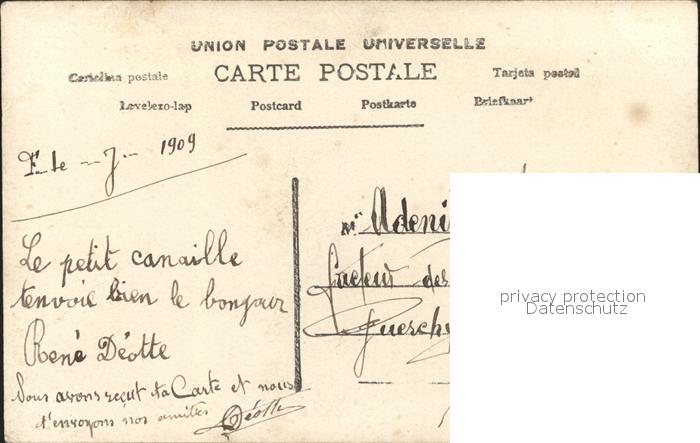 UNION POSTALE UNIVERSELLE
CARTE POSTALE
Cartolina postale Tarjeta postal
Levelezo-lap Postcard Postkarte Briefkaart
le 7 1909
Le petit canaille
t'envoie bien le bonjour
René Déotte
Nous avons reçut ta Carte et nous
t'envoyons nos amitiés Déotte
Facteur des
privacy protection
Datenschutz